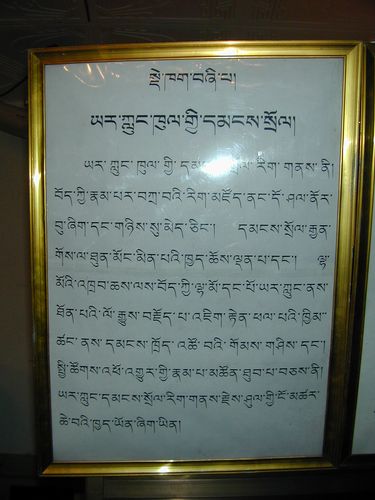 སྡེ་ཁག་བཞི་པ།
ཡར་ཀླུང་ཁུལ་གྱི་དམངས་སྲོལ།
ཡར་ཀླུང་ཁུལ་གྱི་དམངས་སྲོལ་རིག་གནས་ནི།
བོད་ཀྱི་རྣམ་པར་བཀྲ་བའི་རིག་མཛོད་ནང་དོ་ཤལ་ནོར་
བུ་ཞིག་དང་གཉིས་སུ་མེད་ཅིང་། དམངས་སྲོལ་རྒྱན་
གོས་ལ་ཐུན་མོང་མིན་པའི་ཁྱད་ཆོས་ལྡན་པ་དང་། ལྷ་
མོའི་འཁྲབ་ཆས་ལས་བོད་ཀྱི་ལྷ་མོ་དང་པོ་ཡར་ཀླུང་ནས་
ཐོན་པའི་ལོ་རྒྱུས་བརྗོད་པ་འཇིག་རྟེན་ཕལ་པའི་ཁྱིམ་
ཚང་ནས་དམངས་ཁྲོད་འཚོ་བའི་གོམས་གཤིས་དང་།
སྤྱི་ཚོགས་འཕོ་འགྱུར་གྱི་རྣམ་པ་མཚོན་ཐུབ་པ་བཅས་ནི།
ཡར་ཀླུང་དམངས་སྲོལ་རིག་གནས་རྗེས་ཤུལ་གྱི་ངོ་མཚར་
ཆེ་བའི་ཁྱད་ཡོན་ཞིག་ཡིན།